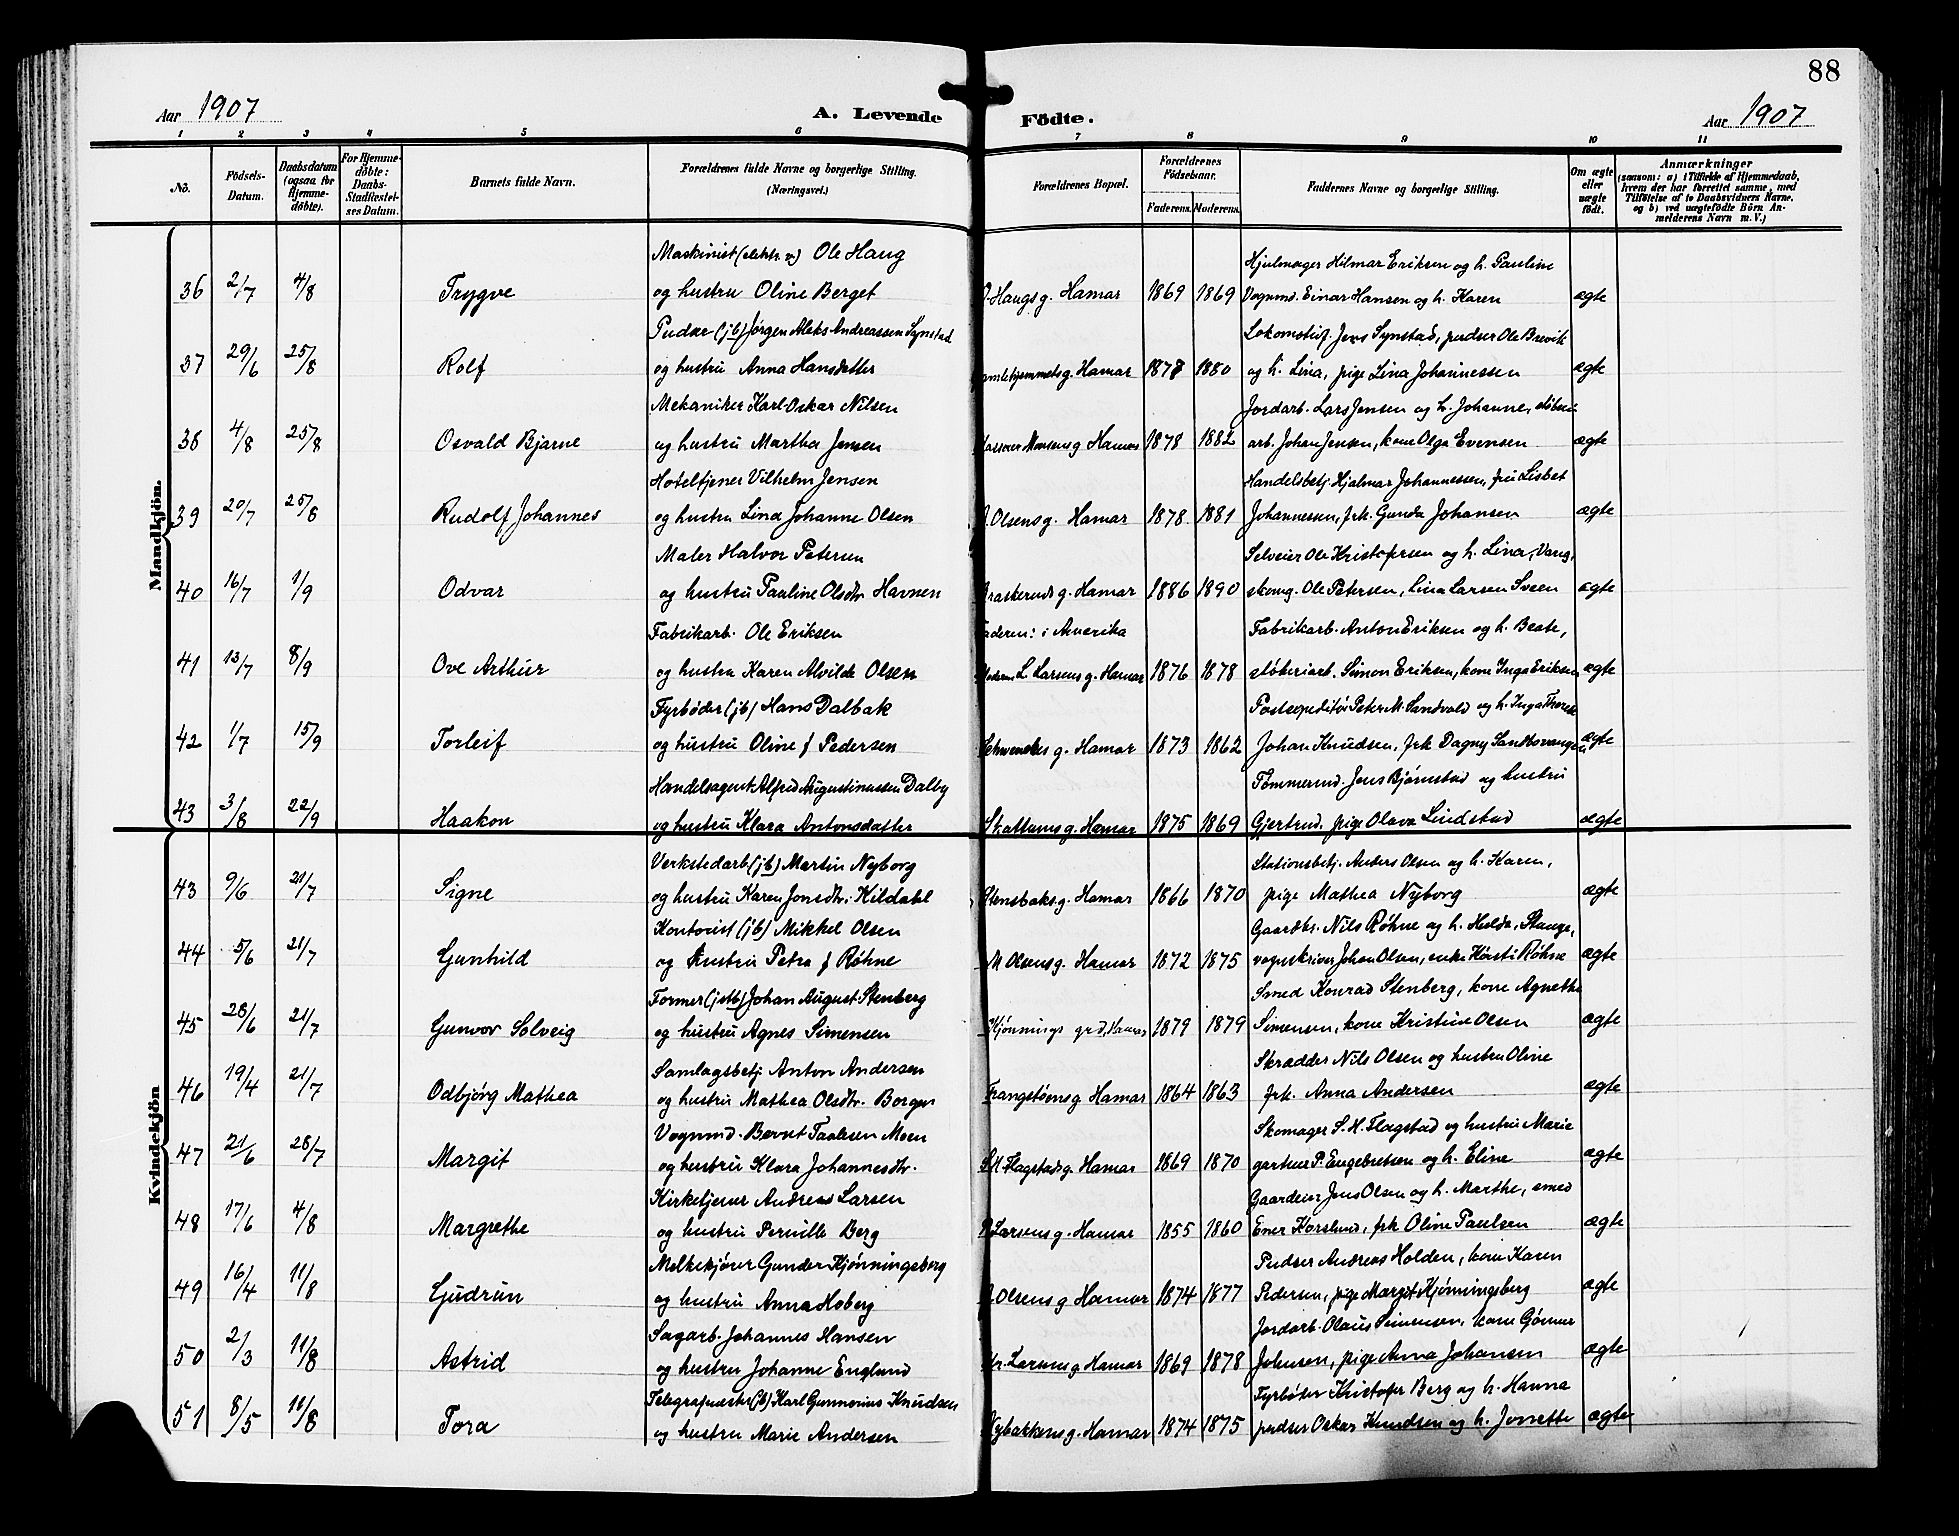 88
Aar 1907
A. Levende
Födte.
Aar 1907
1 2 3 4 5 6 7 8 9 10 11
No.
Födsels-
Datum.
Daabsdatum
(ogsaa for
Hjemme-
döbte).
For Hjemme-
döbte:
Daabs-
Stadfæstel-
ses Datum.
Barnets fulde Navn.
Forældrenes fulde Navne og borgerlige Stilling.
(Næringsvei.)
Forældrenes Bopæl.
Forældrenes
Födselsaar.
Faderens. Moderens.
Faddernes Navne og borgerlige Stilling.
Om ægte
eller
uægte
födt.
Anmærkninger
(saasom: a) i Tilfælde af Hjemmedaab,
hvem der har forrettet samme, med
Tilföielse af to Daabsvidners Navne,
og b) ved uægtefödte Börn An-
melderens Navn m. V.)
Mandkjön.
Maskinist (elektr. v.) Ole Haug Hjulmager Hilmar Eriksen og h. Pauline
36 2/7 4/8 Trygve og hustru Oline Berget O. Haugs g. Hamar 1869 1869 Vognmd. Einar Hansen og h. Karen ægte
Pudser (jb) Jørgen Aleks. Andreassen Synstad Lokomotivf. Jens Synstad, pudser Ole Brevik
37 29/6 25/8 Rolf og hustru Anna Hansdatter Gamlehjemmets g. Hamar 1878 1880 og h. Lina, pige Lina Johannessen ægte
Mekaniker Karl Oskar Nilsen Jordarb. Lars Jensen og h. Johanne, støberi
38 4/8 25/8 Osvald Bjarne og hustru Martha Jensen g. Hamar 1878 1882 arb. Johan Jensen, kone Olga Evensen ægte
Hoteltjener Vilhelm Jensen Handelsbetj. Hjalmar Johannessen, fru Lisbet
39 20/7 25/8 Rudolf Johannes og hustru Lina Johanne Olsen Olsens g. Hamar 1878 1881 Johannessen, frk. Gunda Johansen ægte
Maler Halvor Petersen Selveier Ole Kristofersen og h. Lina, Vang,
40 16/7 1/9 Odvar og hustru Pauline Olsdtr. Havnen Braskeruds g. Hamar 1886 1890 skomg. Ole Petersen, Lina Larsen Sveen ægte
Fabrikarb. Ole Eriksen Faderen: i Amerika Fabrikarb. Anton Eriksen og h. Beate,
41 13/7 8/9 Ove Arthur og hustru Karen Alvilde Olsen Moderen L. Larsens g. Hamar 1876 1878 støberiarb. Simon Eriksen, kone Inga Eriksen ægte
Fyrbøder (jb) Hans Dalbak Postexpeditør Peter M. Sandvold og h. Inga Therese
42 1/7 15/9 Torleif og hustru Oline f Pedersen Schwenckes g. Hamar 1873 1862 Johan Knudsen, frk Dagny Sandbovangen ægte
Handelsagent Alfred Augustinussen Dalby Tømmermd. Jens Bjørnstad og hustru
43 3/8 22/9 Haakon og hustru Klara Antonsdatter Skattums g. Hamar 1875 1869 Gjertrud, pige Olava Lindstad ægte
Kvindekjön
Verkstedarb (jb) Martin Nyborg Stationsbetj. Anders Olsen og h. Karen,
43 9/6 21/7 Signe og hustru Karen Jonsdtr. Kildahl Stensbaks g. Hamar 1866 1870 pige Mathea Nyborg ægte
Kontorist (jb) Mikkel Olsen Gaardbr. Nils Røhne og h. Hulda, Stange,
44 5/6 21/7 Gunhild og hustru Petra f Røhne M Olsens g. Hamar 1872 1875 vognskriver Johan Olsen, enke Kersti Røhne ægte
Former (jstb) Johan August Stenberg Smed Konrad Stenberg, kone Agnethe
45 28/6 21/7 Gunvor Solveig og hustru Agnes Simensen Kjønnings grd, Hamar 1879 1879 Simensen, kone Kristine Olsen ægte
Samlagsbetj. Anton Andersen Skrædder Nils Olsen og hustru Oline
46 19/4 21/7 Odbjørg Mathea og hustru Mathea Olsdtr. Borgen Frangstøens g Hamar 1864 1863 frk. Anna Andersen ægte
Vognmd. Bernt Paulsen Moen Skomager S. H. Flagstad og hustru Marie
47 21/6 28/7 Margit og hustru Klara Johannesdtr. S.H. Flagstads g. Hamar 1869 1870 gartner P. Engebretsen og h. Eline ægte
Kirketjener Andreas Larsen Gaardeier Jens Olsen og h. Marthe, smed
48 17/6 4/8 Margrethe og hustru Pernille Berg Larsens g. Hamar 1855 1860 Ener Korslund, frk Oline Paulsen ægte
Melkekjører Gunder Kjønningsberg Pudser Andreas Holden, kone Karen
49 16/4 11/8 Gudrun og hustru Anna Hoberg Olsens g Hamar 1874 1877 Pedersen, pige Margit Kjønningsberg ægte
Sagarb. Johannes Hansen Jordarb. Olaus Simensen, kone Gønner
50 2/3 11/8 Astrid og hustru Johanne Englund Kr. Larsens g Hamar 1869 1878 Johnsen, pige Anna Johansen ægte
Telegrafmester (jb) Karl Gunnarius Knudsen Fyrbøter Kristofer Berg og h. Hanna
51 8/5 11/8 Tora og hustru Marie Andersen Nybakkens g. Hamar 1874 1875 pudser Oskar Knudsen og h. Jonette ægte